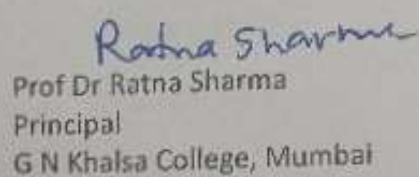 Ratna Sharma
Prof Dr Ratna Sharma
Principal
G N Khalsa College, Mumbai